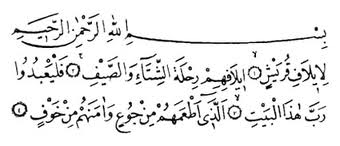 بِسْمِ اللهِ الرَّحْمٰنِ الرَّحِيمِ
لِإِيلَافِ قُرَيْشٍ ۙ ﴿١﴾ اِيلَافِهِمْ رِحْلَةَ الشِّتَٓاءِ وَالصَّيْفِۚ ﴿٢﴾ فَلْيَعْبُدُوا
رَبَّ هٰذَا الْبَيْتِۙ ﴿٣﴾ اَلَّذِٓى اَطْعَمَهُمْ مِنْ جُوعٍ وَاٰمَنَهُمْ مِنْ خَوْفٍ ﴿٤﴾